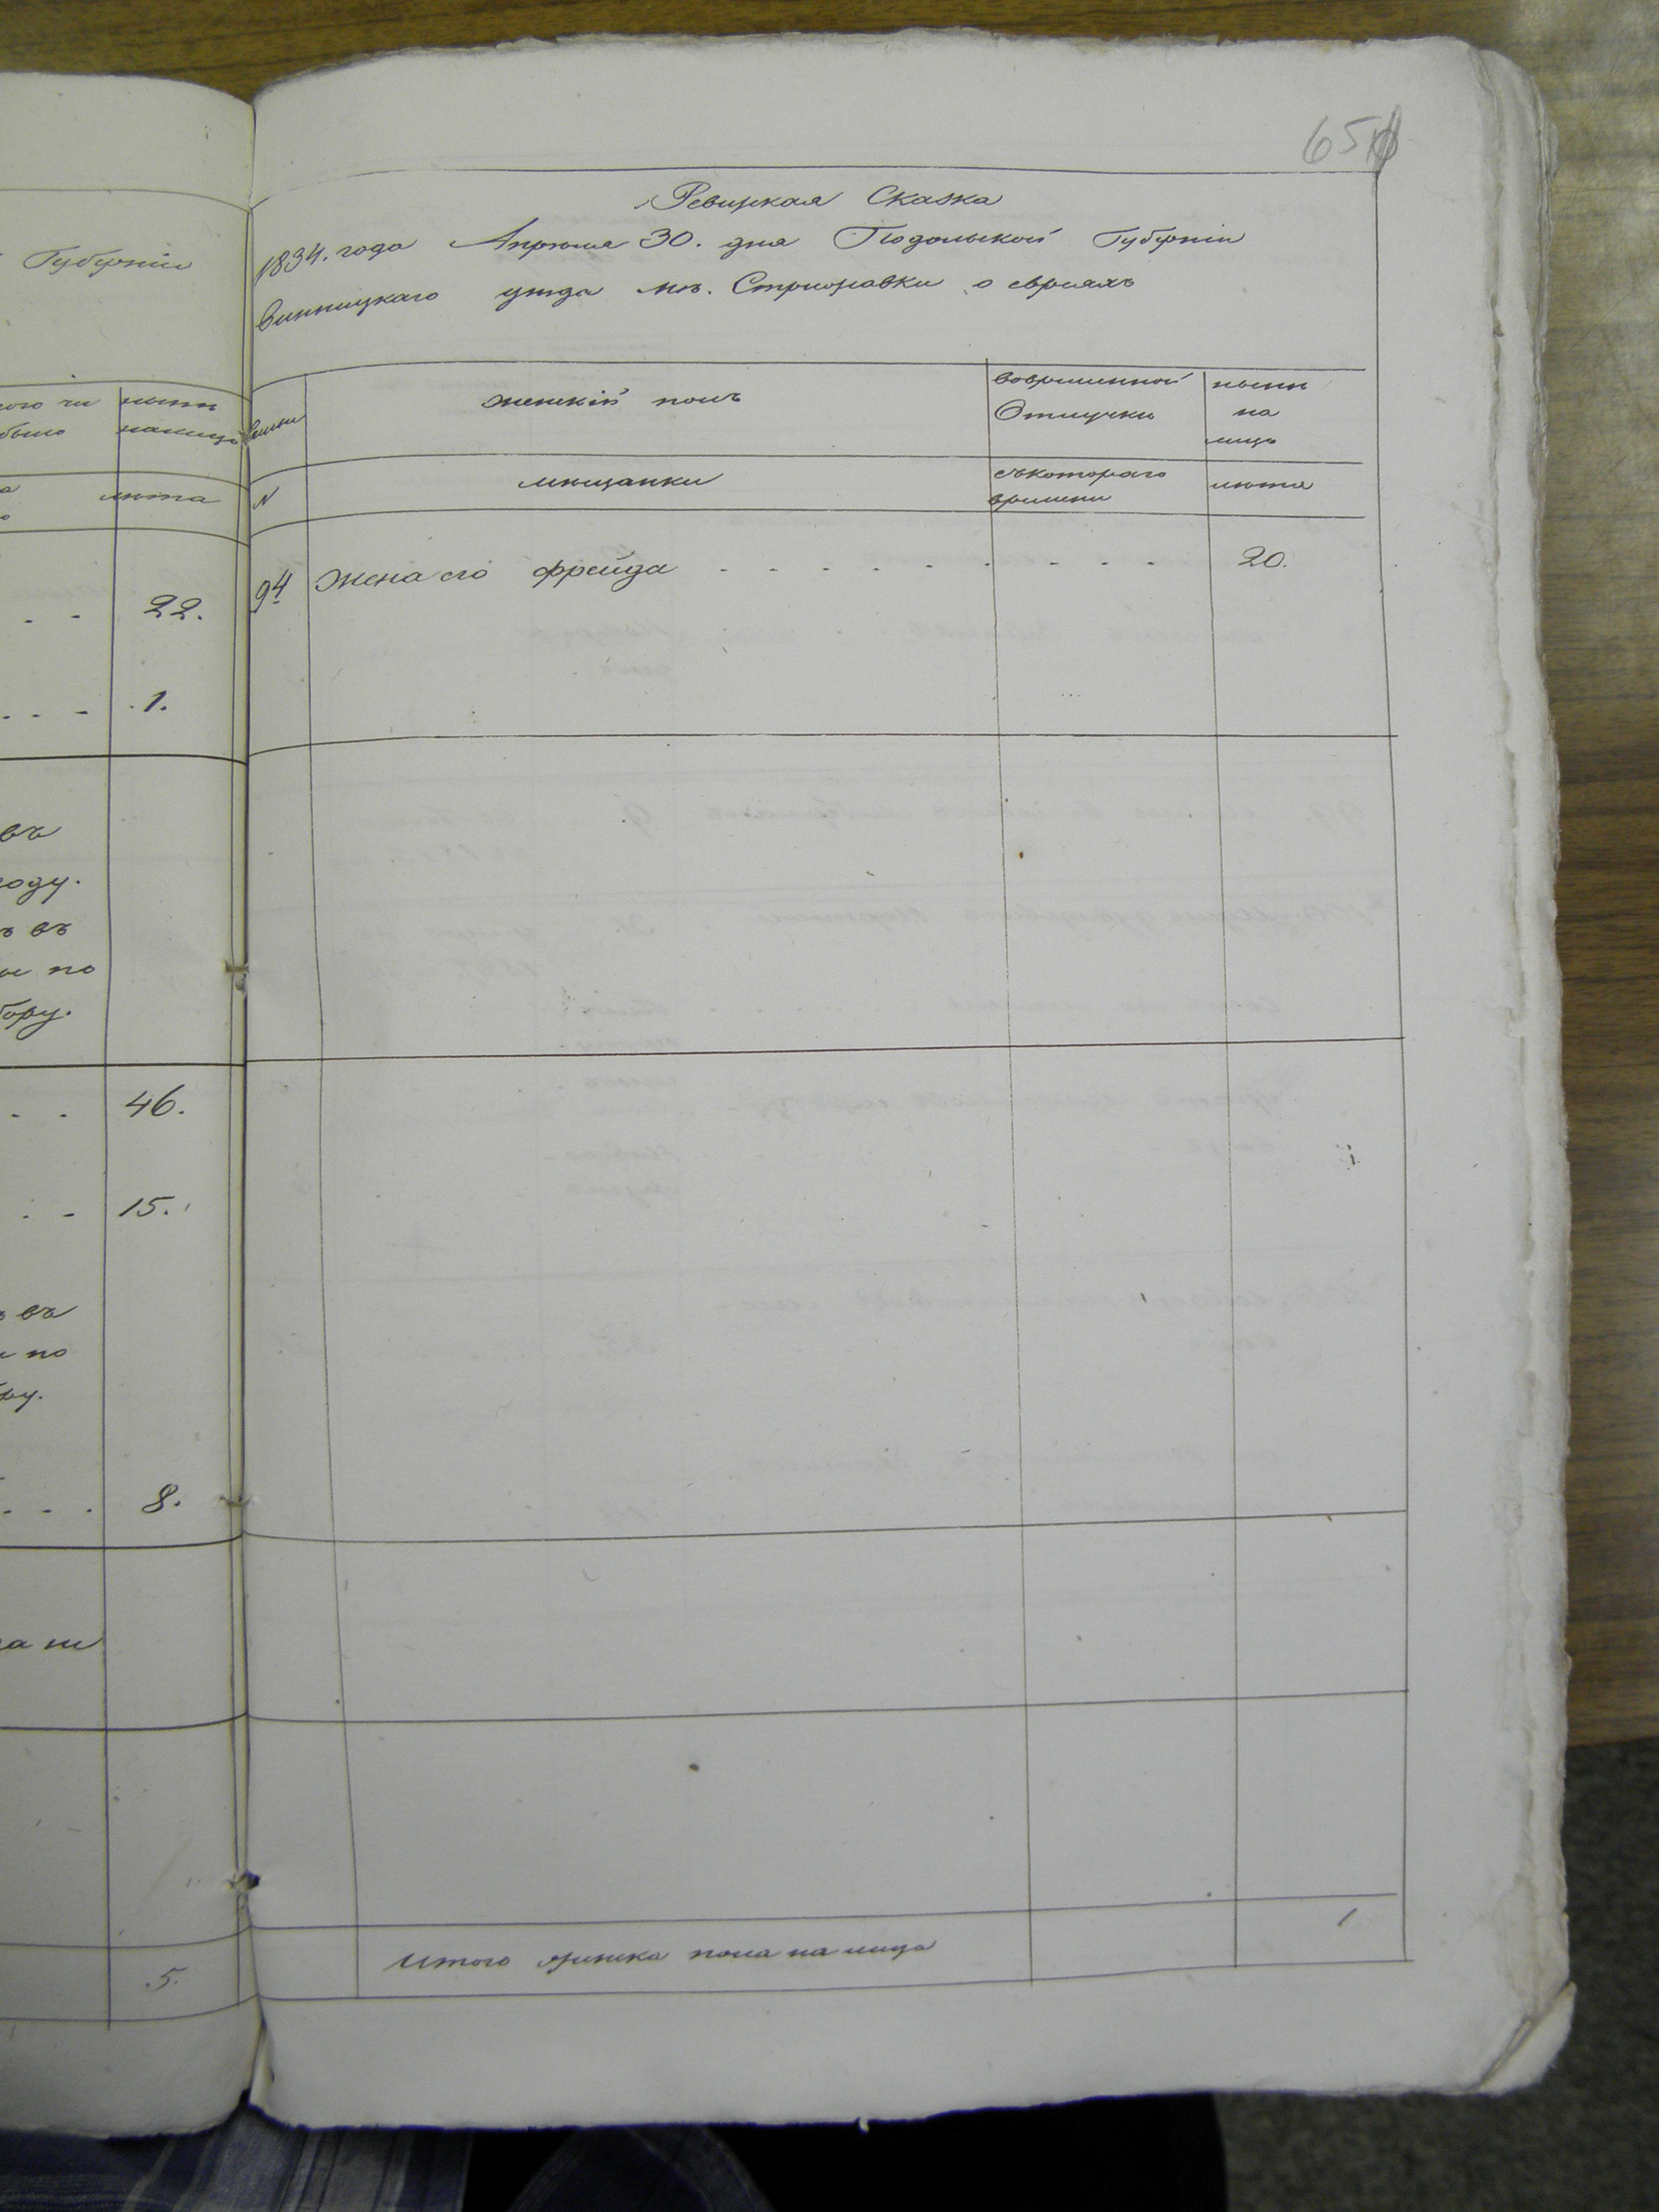 Губерніи
ныне
было
налицо
лѣта
22.
1.
въ
году.
въ
по
46.
15.
въ
по
8.
5.
651
Ревизская Сказка
1834. года Апреля 30. дня Подольской Губерніи
Винницкаго уезда мѣ. Стрижавки о евреяхъ
женскій полъ
вовременной
Отлучки
ныне
на
лицо
N
мещанки
съкотораго
времени
лета
94 Жена его Фрейда . . . . . . . . . . 20.
Итого женска пола на лицо 1